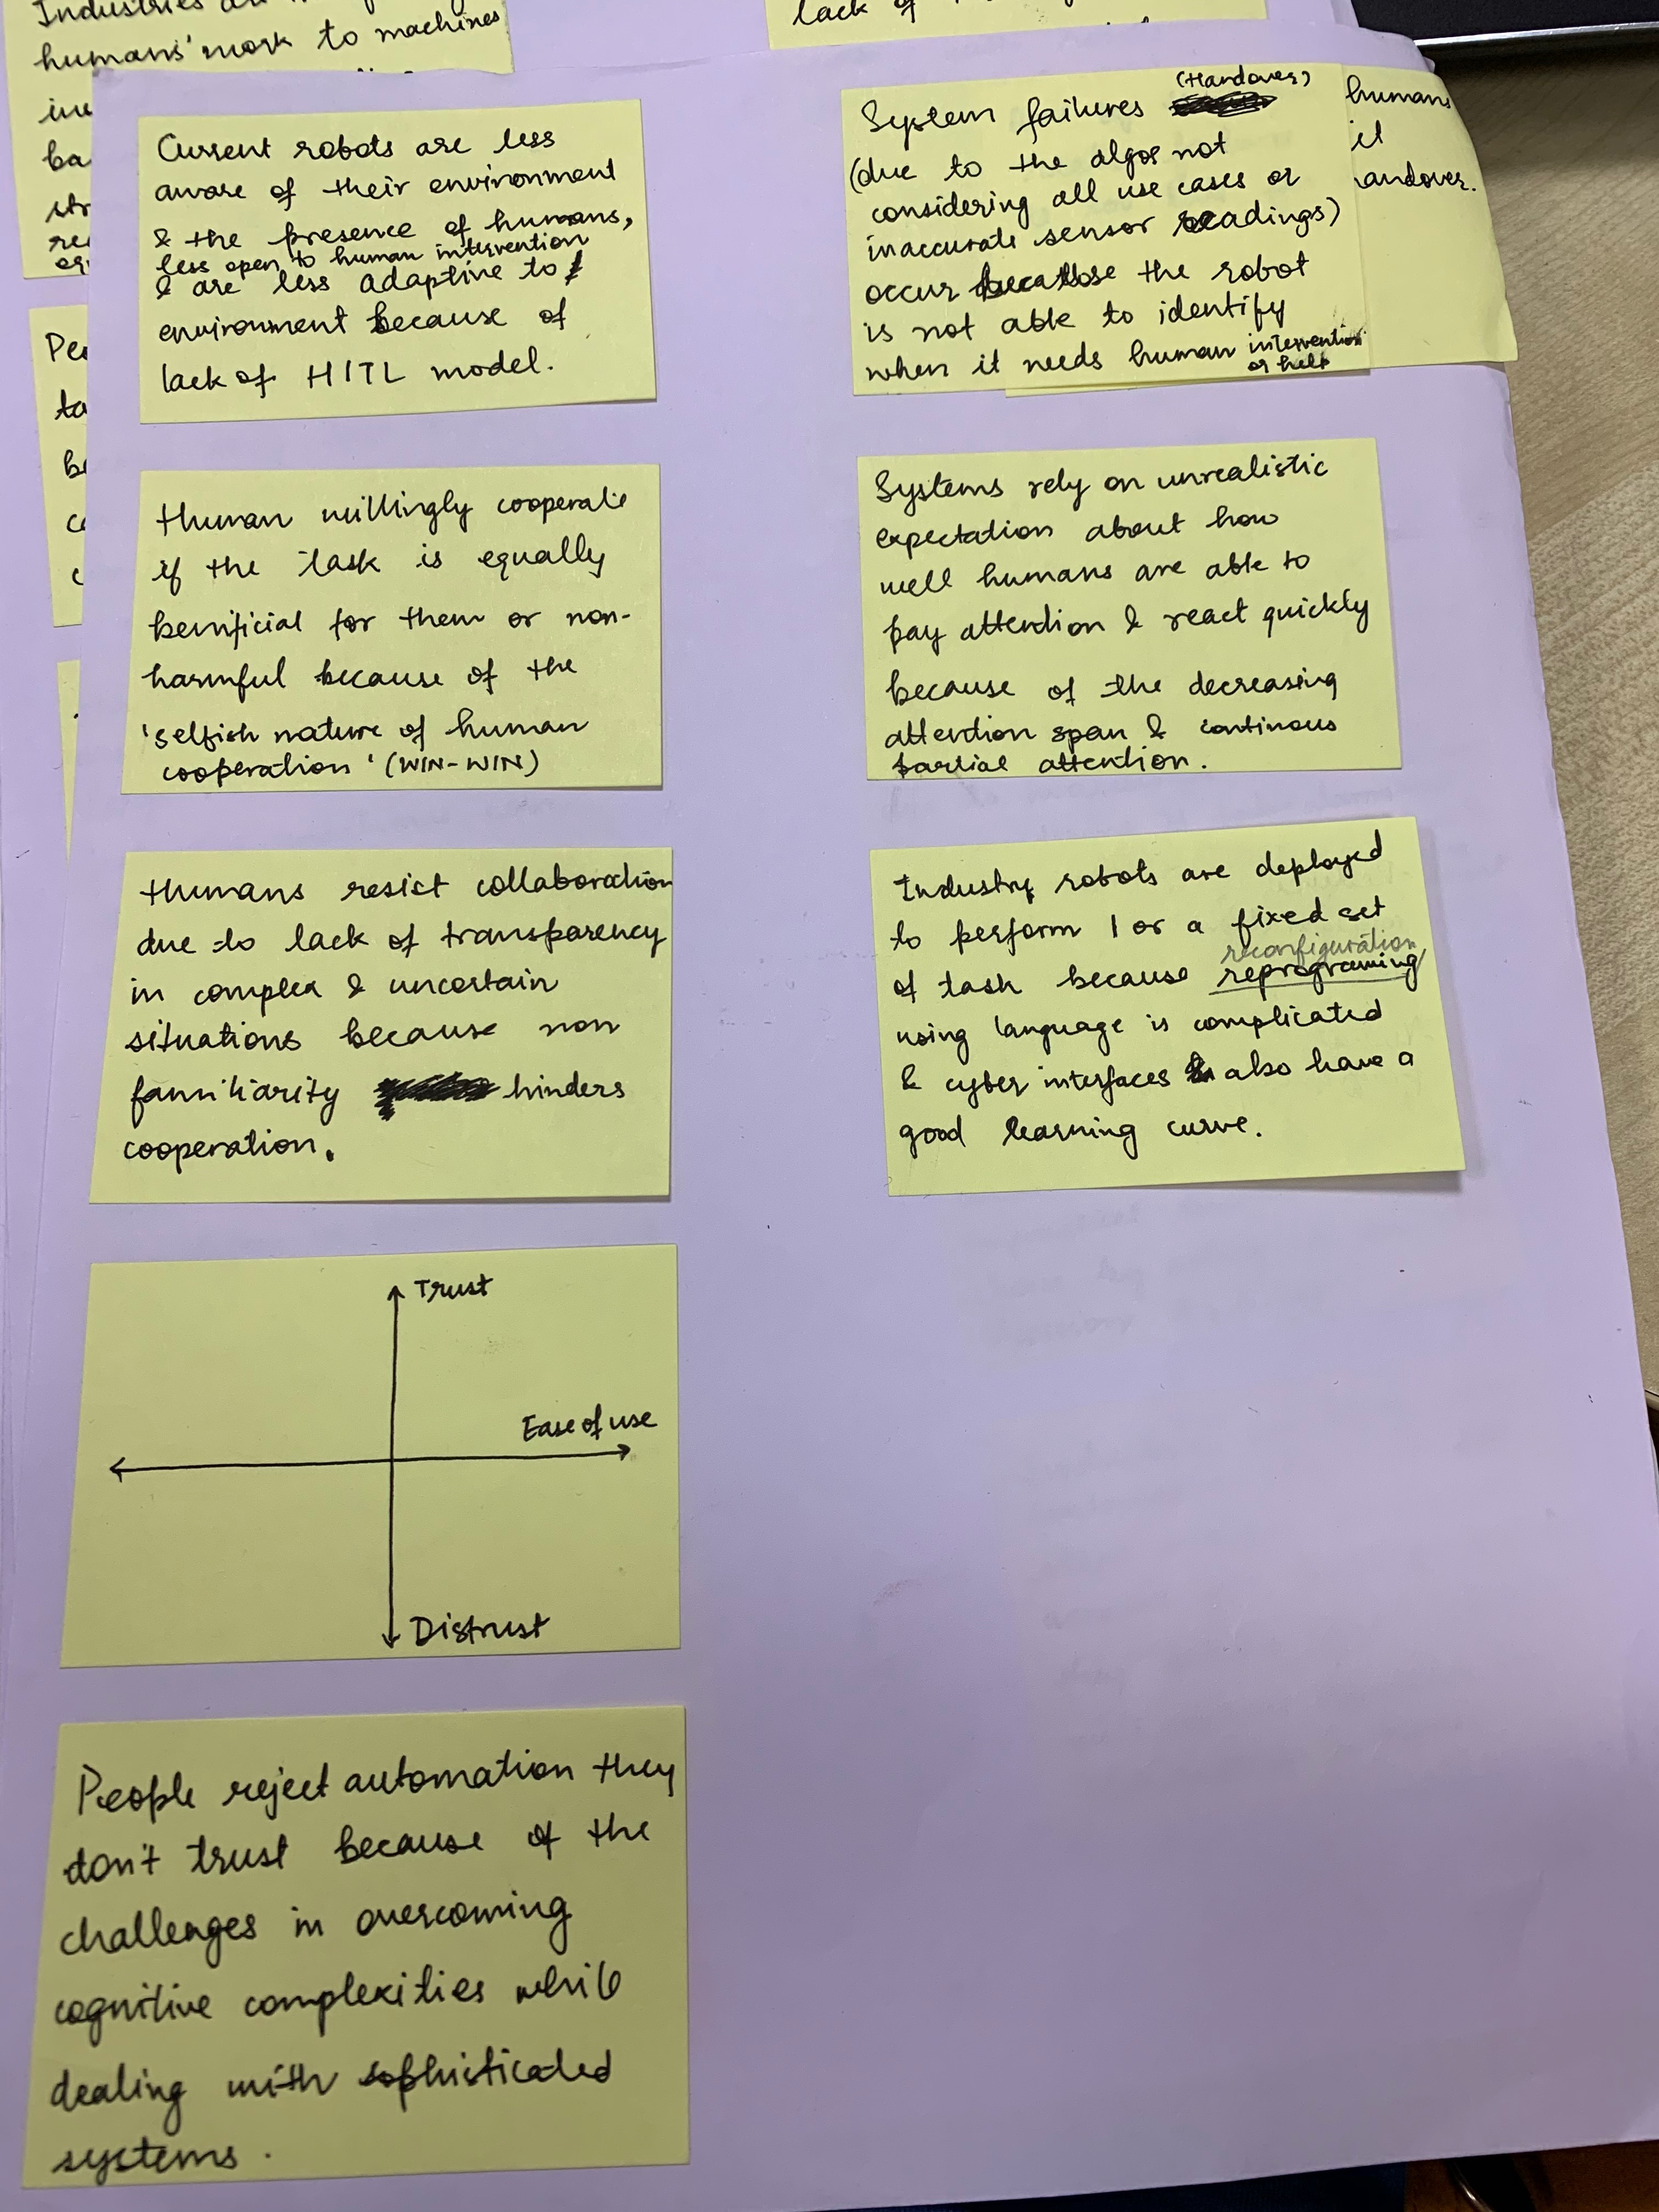 Industries are
humans' work to machines
in
ba
str
re
lack of
Current robots are less
aware of their environment
& the presence of humans,
less open to human intervention
& are less adaptive to
environment because of
lack of HITL model.
(Handover)
System failures
(due to the algos not
considering all use cases or
inaccurate sensor readings)
occur because the robot
is not able to identify
when it needs human intervention
or help
humans
it
andover.
Pe
ta
be
c
Human willingly cooperate
if the task is equally
benificial for them or non-
harmful because of the
'selfish nature of human
cooperation' (WIN-WIN)
Systems rely on unrealistic
expectation about how
well humans are able to
pay attention & react quickly
because of the decreasing
attention span & continous
partial attention.
Humans resist collaboration
due to lack of transparency
in complex & uncertain
situations because non
familiarity hinders
cooperation.
Industry robots are deployed
to perform 1 or a fixed set
reconfiguration
of task because reprograming
using language is complicated
& cyber interfaces also have a
good learning curve.
Trust
Ease of use
Distrust
People reject automation they
don't trust because of the
challenges in overcoming
cognitive complexities while
dealing with sophisticated
systems.